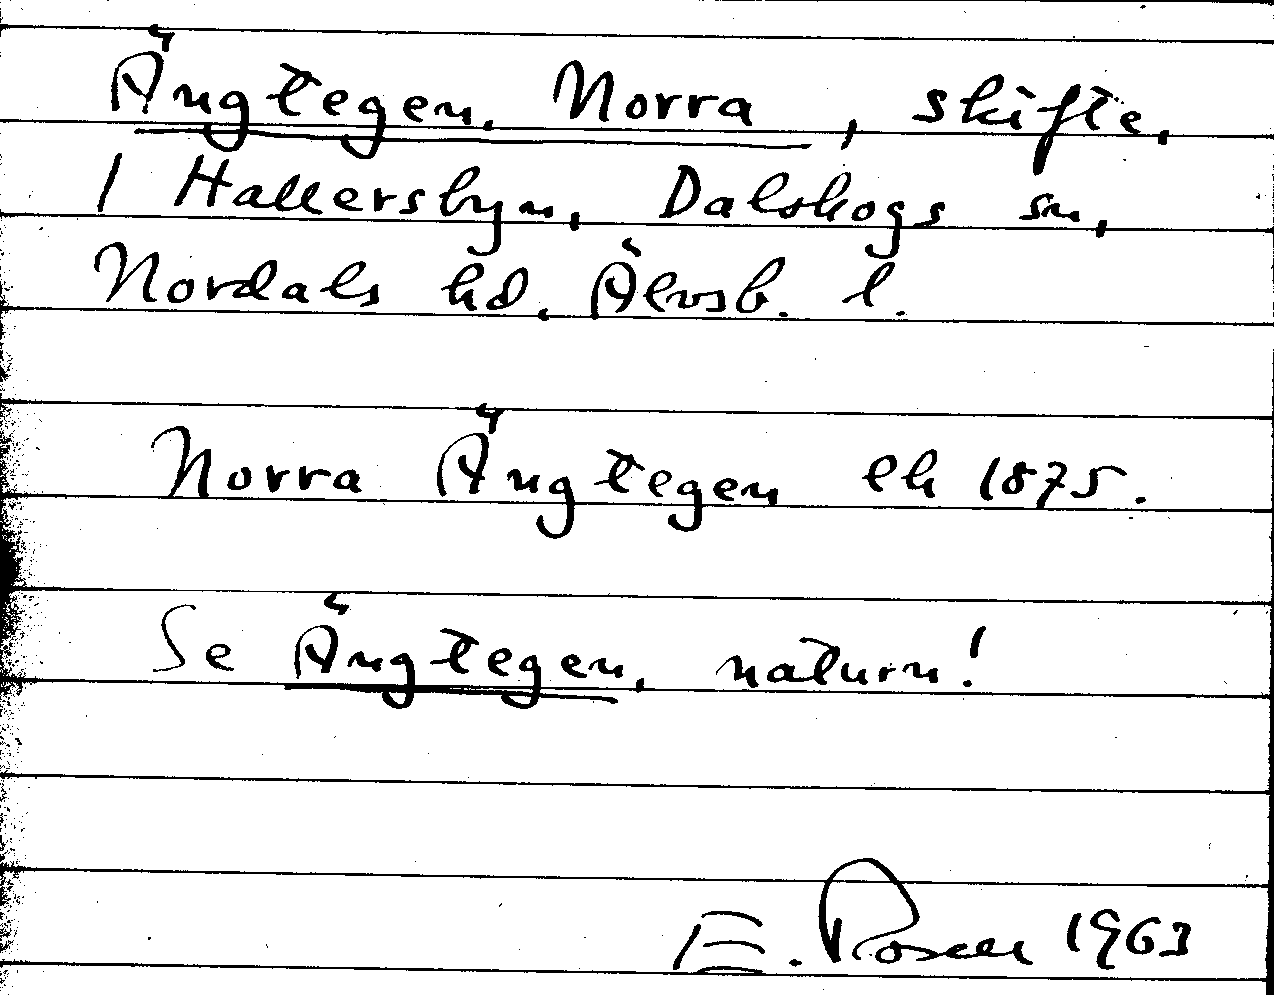 Ängtegen, Norra, skifte,
1 Hallersbyn, Dalskogs sn,
Nordals hd. Älvsb. l.
Norra Ängtegen ek 1875.
Se Ängtegen, naturn!
E. Rosell 1963